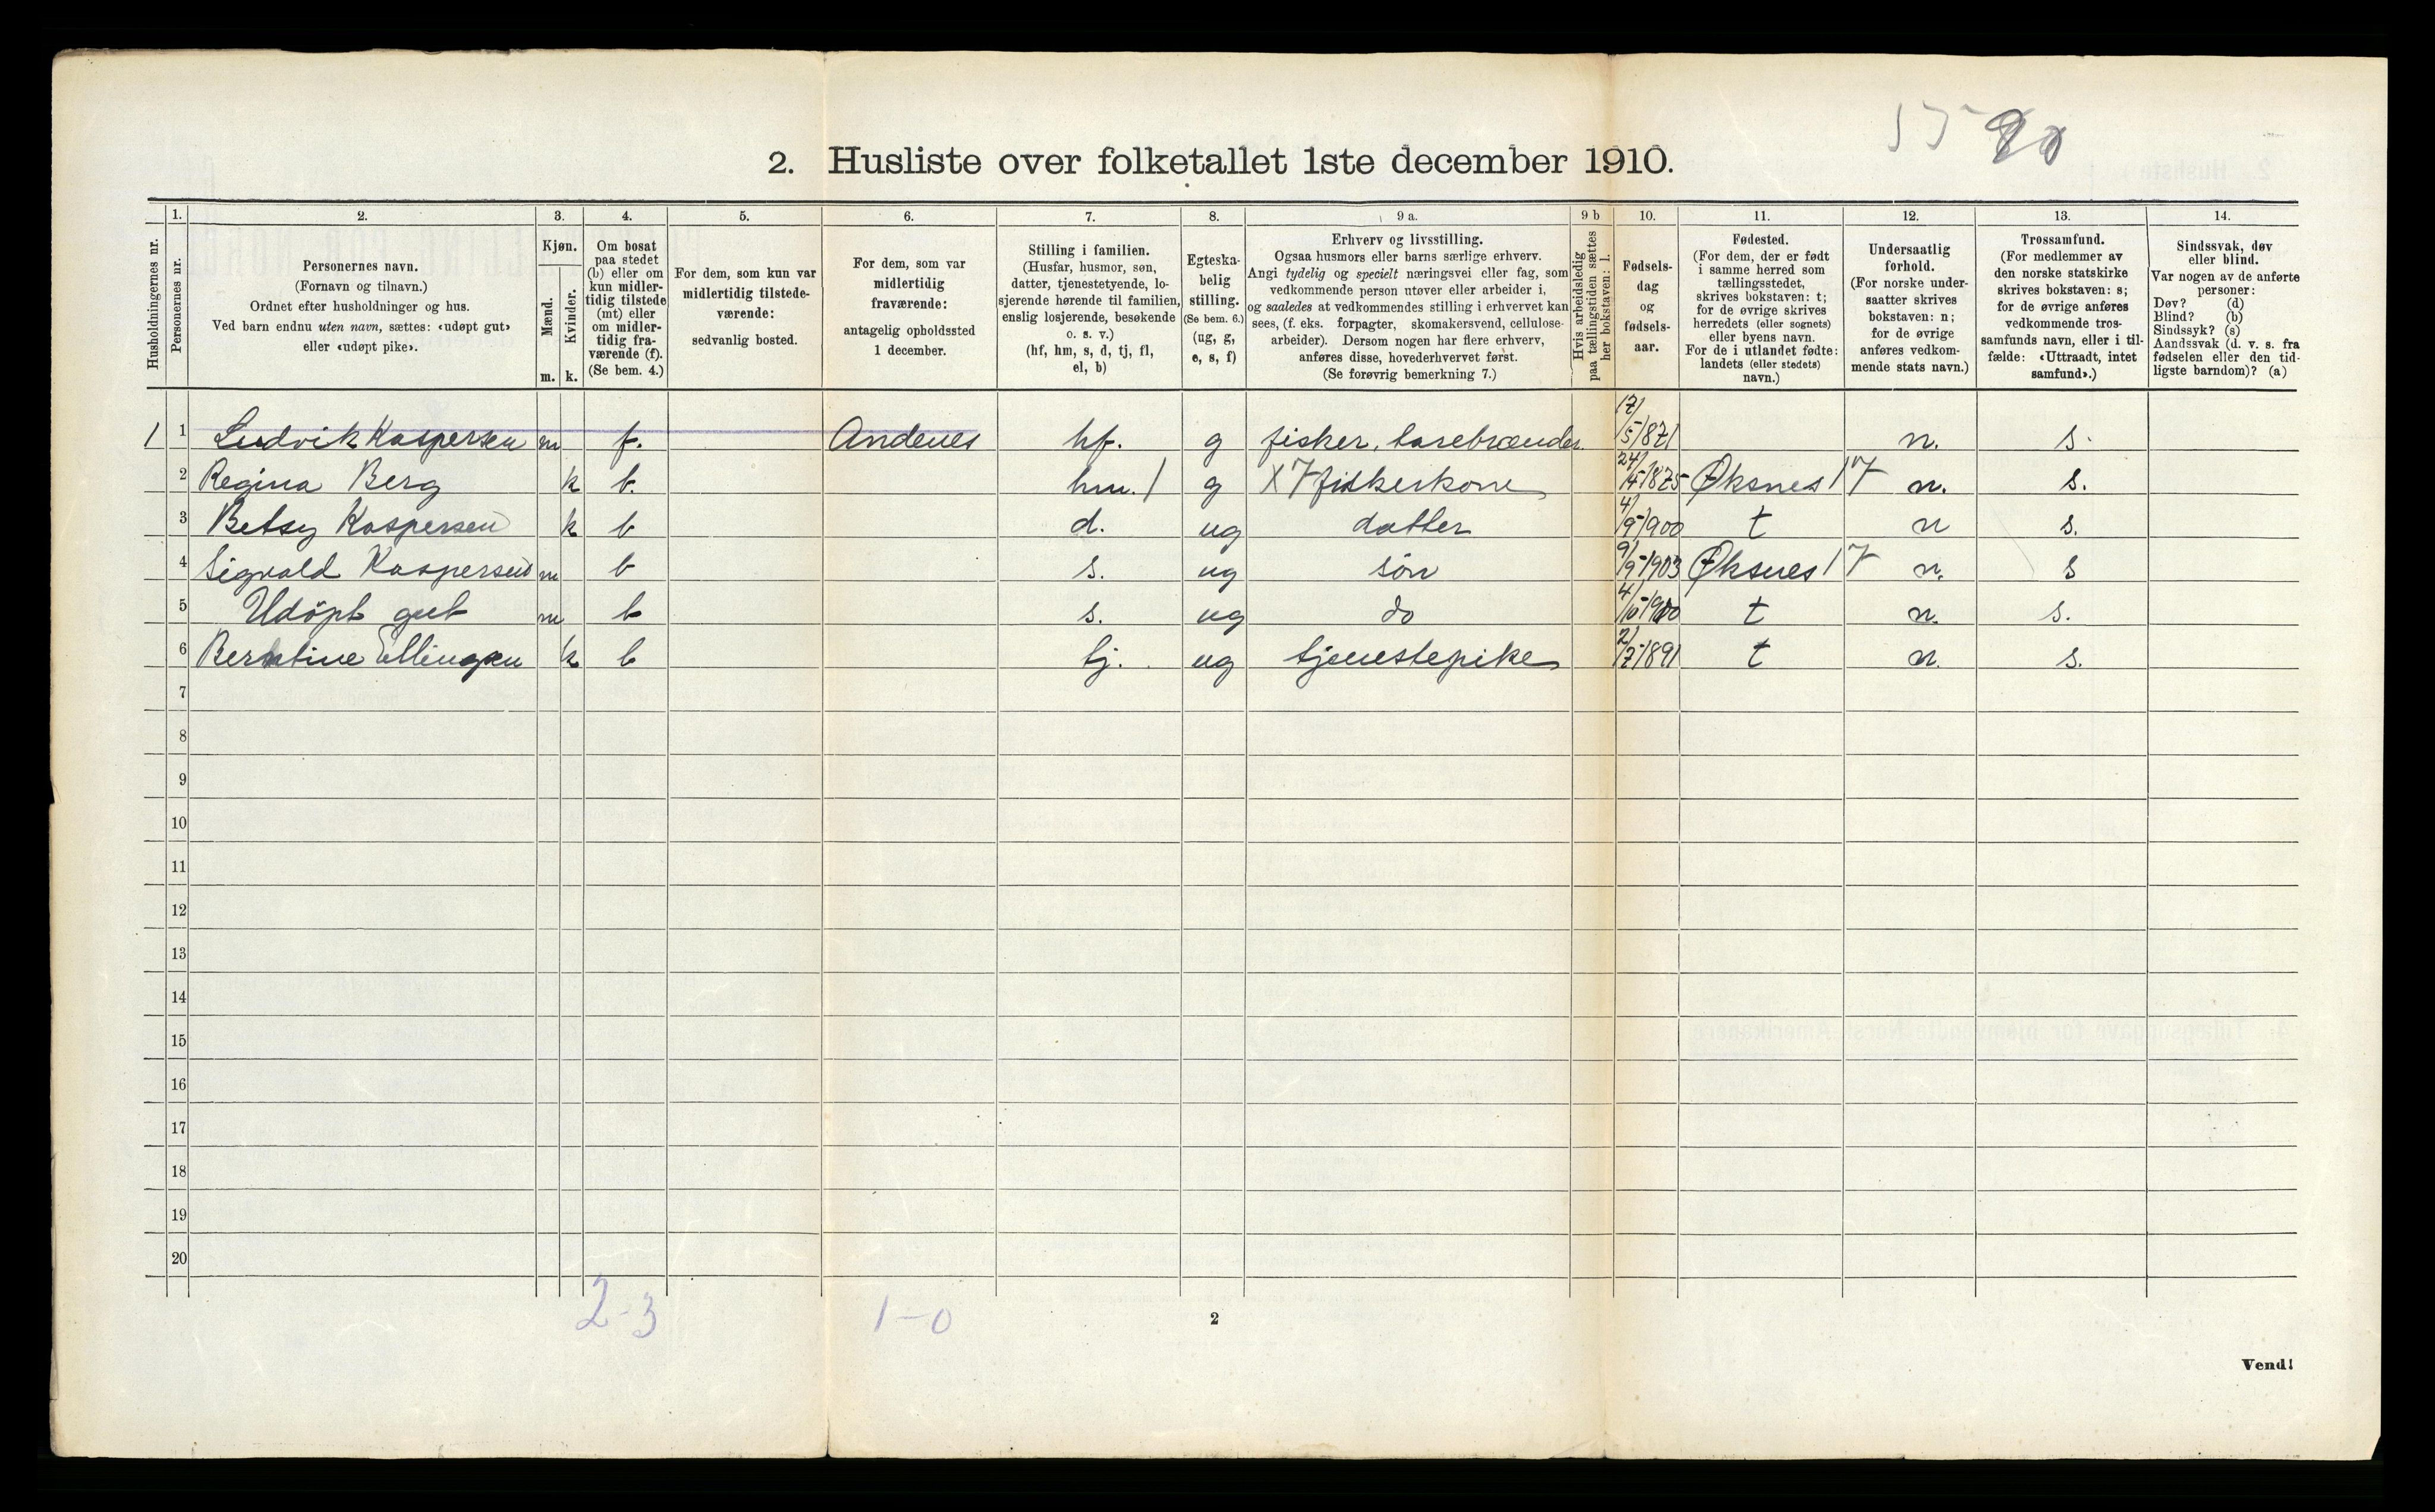 2. Husliste over folketallet 1ste december 1910.
Husholdningernes nr.
1.
Personernes nr.
2.
Personernes navn.
(Fornavn og tilnavn.)
Ordnet efter husholdninger og hus.
Ved barn endnu uten navn, sættes: «udøpt gut»
eller «udøpt pike».
3.
Kjøn.
Mænd.
Kvinder.
m. k.
4.
Om bosat
paa stedet
(b) eller om
kun midler-
tidig tilstede
(mt) eller
om midler-
tidig fra-
værende (f).
(Se bem. 4.)
5.
For dem, som kun var
midlertidig tilstede-
værende:
sedvanlig bosted.
6.
For dem, som var
midlertidig
fraværende:
antagelig opholdssted
1 december.
7.
Stilling i familien.
(Husfar, husmor, søn,
datter, tjenestetyende, lo-
sjerende hørende til familien,
enslig losjerende, besøkende
o. s. v.)
(hf, hm, s, d, tj, fl,
el, b)
8.
Egteska-
belig
stilling.
(Se bem. 6.)
(ug, g,
e, s, f)
9 a.
Erhverv og livsstilling.
Ogsaa husmors eller barns særlige erhverv.
Angi tydelig og specielt næringsvei eller fag, som
vedkommende person utøver eller arbeider i,
og saaledes at vedkommendes stilling i erhvervet kan
sees, (f. eks. forpagter, skomakersvend, cellulose-
arbeider). Dersom nogen har flere erhverv,
anføres disse, hovederhvervet først.
(Se forøvrig bemerkning 7.)
9 b
Hvis arbeidsledig
paa tællingstiden sættes
her bokstaven: l.
10.
Fødsels-
dag
og
fødsels-
aar.
11.
Fødested.
(For dem, der er født
i samme herred som
tællingsstedet,
skrives bokstaven: t;
for de øvrige skrives
herredets (eller sognets)
eller byens navn.
For de i utlandet fødte:
landets (eller stedets)
navn.)
12.
Undersaatlig
forhold.
(For norske under-
saatter skrives
bokstaven: n;
for de øvrige
anføres vedkom-
mende stats navn.)
13.
Trossamfund.
(For medlemmer av
den norske statskirke
skrives bokstaven: s;
for de øvrige anføres
vedkommende tros-
samfunds navn, eller i til-
fælde: «Uttraadt, intet
samfund».)
14.
Sindssvak, døv
eller blind.
Var nogen av de anførte
personer:
Døv? (d)
Blind? (b)
Sindssyk? (s)
Aandssvak (d. v. s. fra
fødselen eller den tid-
ligste barndom)? (a)
1 1 Ludvik Kaspersen m f. Andenes hf. g fisker, tarebrænder 17/5/871 n. s.
2 Regina Berg k b. hm. / g X 7 fiskerkone 1875 Øksnes 17 n. s.
3 Betsy Kaspersen k b d. ug datter 4/9-1900 t n s.
4 Sigvald Kaspersen m b s. ug søn 9/9-1903 Øksnes 17 n. s
5 Udøpt gut m b s. ug do t n. s.
6 Ellingsen k b tj. ug tjenestepike 2/7-1891 t n. s.
7
8
9
10
11
12
13
14
15
16
17
18
19
20
2-3 1-0
2
Vend!